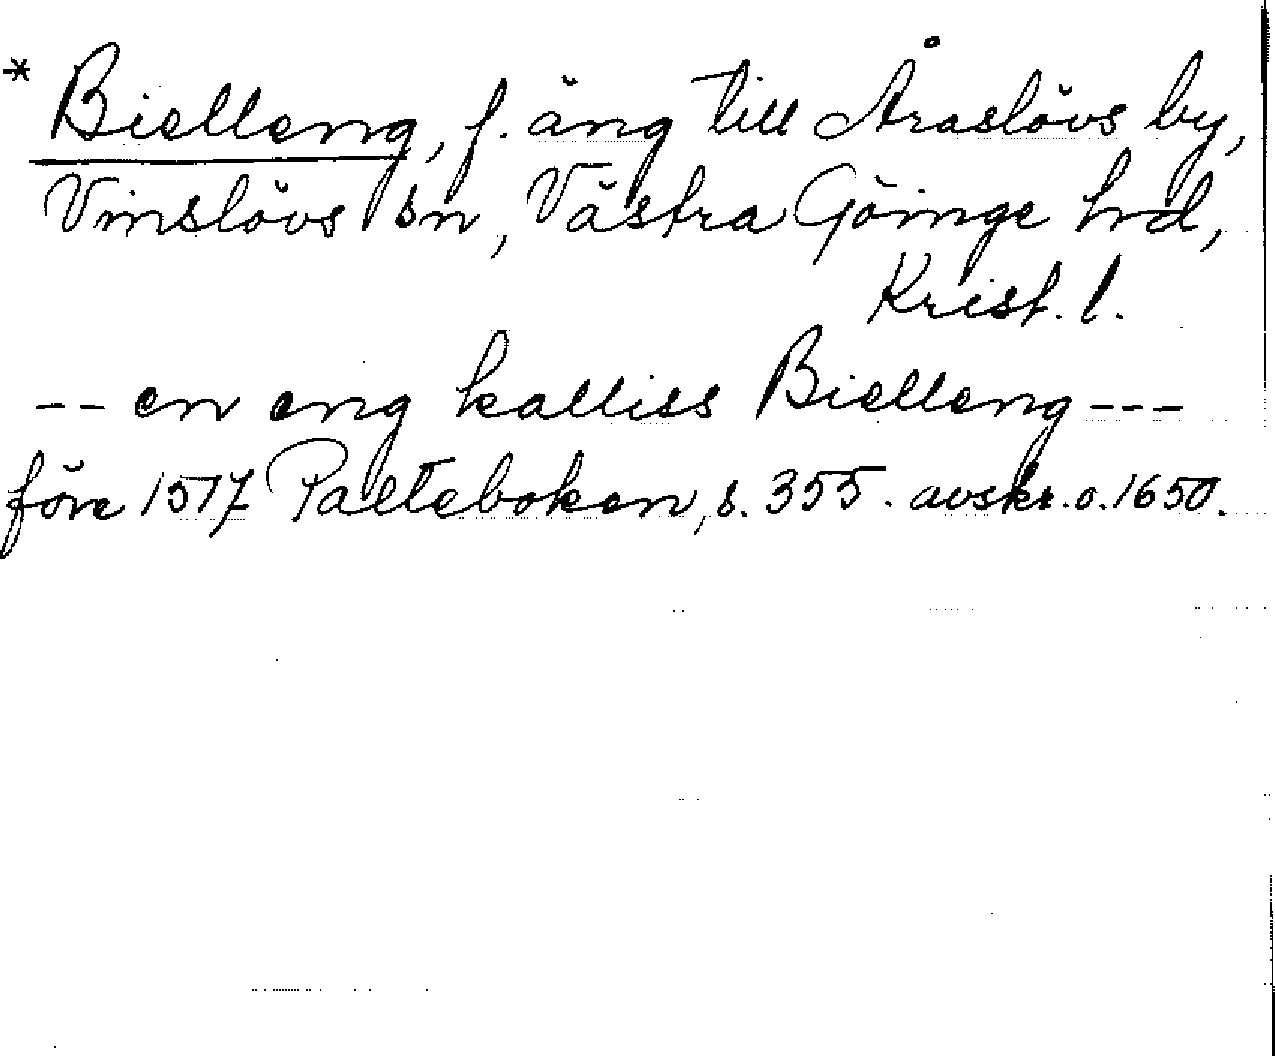 * Bielleng, f. äng till Åraslövs by,
Vinslövs sn, Västra Göinge hrd,
Krist. l.
-- en eng kalliss Bielleng ---
före 1517 Palteboken, s. 355. avskr. o. 1650.